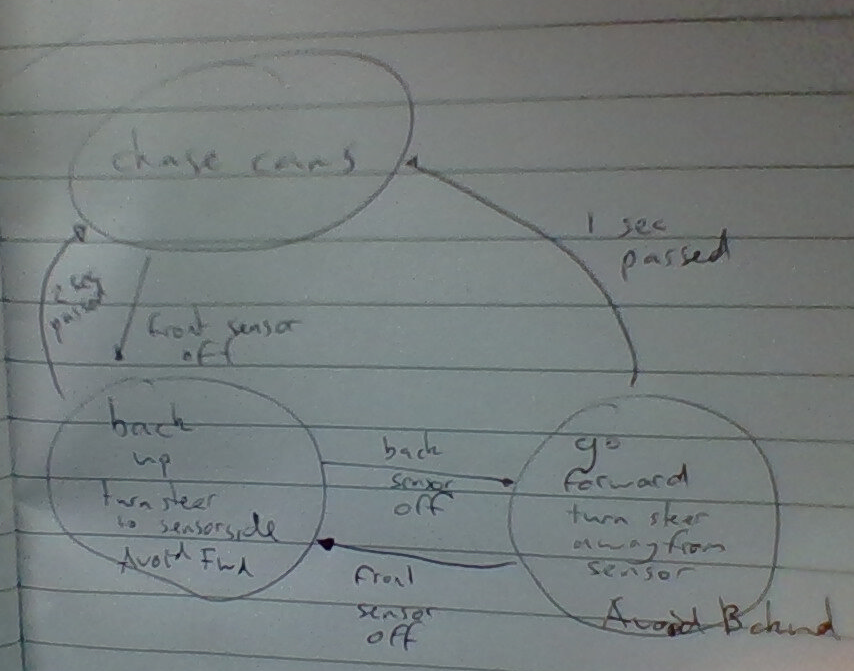 chase cans
1 sec
passed
2 sec
passed
front sensor
off
back
up
turn steer
to sensorside
Avoid Fwd
back
sensor
off
go
forward
turn steer
away from
sensor
Avoid Behind
front
sensor
off